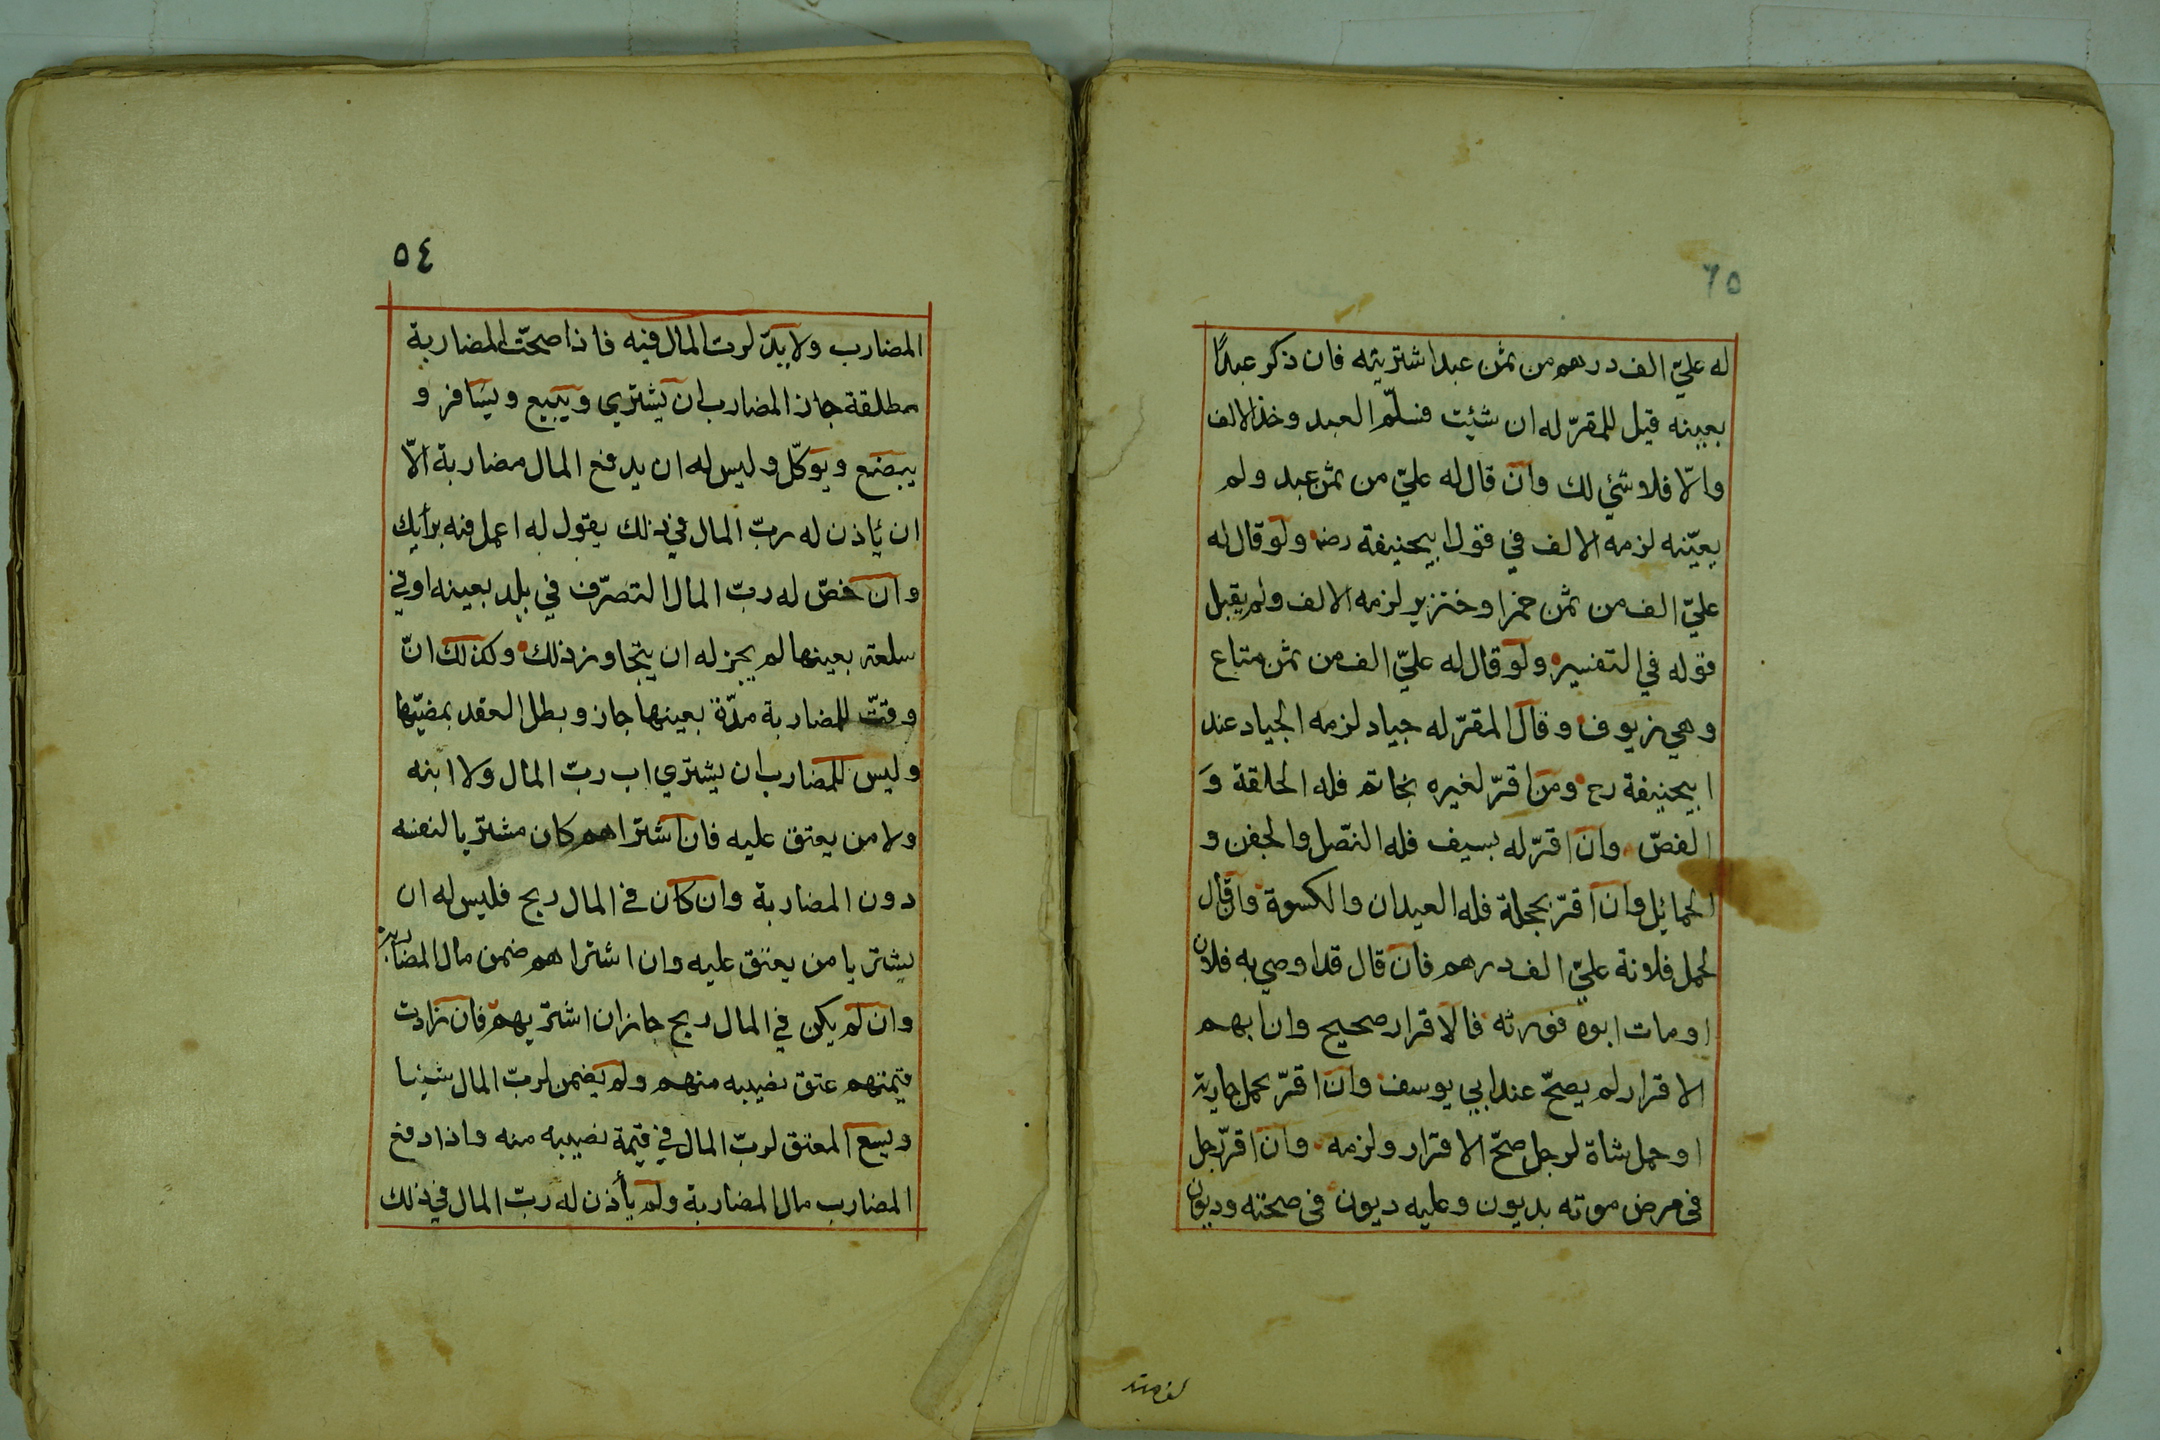 ٦٥
له عليّ الف درهم من ثمن عبد اشتريته فان ذكر عبدًا
بعينه قيل للمقرّ له ان شئت فسلّم العبد وخذ الالف
والّا فلا شئ لك وان قال له عليّ من ثمن عبد ولم
يعيّنه لزمه الالف في قول ابيحنيفة رضه ولو قال له
عليّ الف من ثمن خمر او خنزير لزمه الالف ولم يقبل
قوله في التفسيره ولو قال له عليّ الف من ثمن متاع
وهي زيوف وقال المقرّ له جياد لزمه الجياد عند
ابيحنيفة رح ومن اقرّ لغيره بخاتم فله الحلقة و
الفصّ وان اقرّ له بسيف فله النّصل والجفن و
الحمائل وان اقرّ بحجلة فله العيدان والكسوة وان قال
لحمل فلانة عليّ الف درهم فان قال قد اوصي به فلان
او مات ابوه فورثه فالاقرار صحيح وان ابهم
الاقرار لم يصحّ عند ابي يوسف وان اقرّ بحمل جارية
او حمل شاة لرجل صحّ الاقرار ولزمه وان اقرّ رجل
في مرض موته بديون وعليه ديون في صحته وديون
٥٤
المضارب ولا يدّ لربّ المال فيه فاذا صحّت المضاربة
مطلقة جاز المضارب ان يشتري ويبيع ويسافر و
يبضع ويوكّل وليس له ان يدفع المال مضاربة الّا
ان يأذن له ربّ المال في ذلك يقول له اعمل فيه برأيك
وان خصّ له ربّ المال التصرّف في بلد بعينه او في
سلعة بعينها لم يجز له ان يتجاوز ذلك وكذلك انّ
وقتّ للمضاربة مدّة بعينها جاز وبطل العقد بمضيّها
وليس للمضارب ان يشتري اب ربّ المال ولا ابنه
ولا من يعتق عليه فان اشتراهم كان مشتريا لنفسه
دون المضاربة وان كان في المال ربح فليس له ان
يشتريا من يعتق عليه وان اشتراهم ضمن مال المضاربة
وان لم يكن في المال ربح جاز ان اشتريهم فان زادت
قيمتهم عتق نصيبه منهم ولم يضمن لربّ المال شيئا
ويسع المعتق لربّ المال في قيمة نصيبه منه واذا دفع
المضارب مال المضاربة ولم يأذن له ربّ المال في ذلك